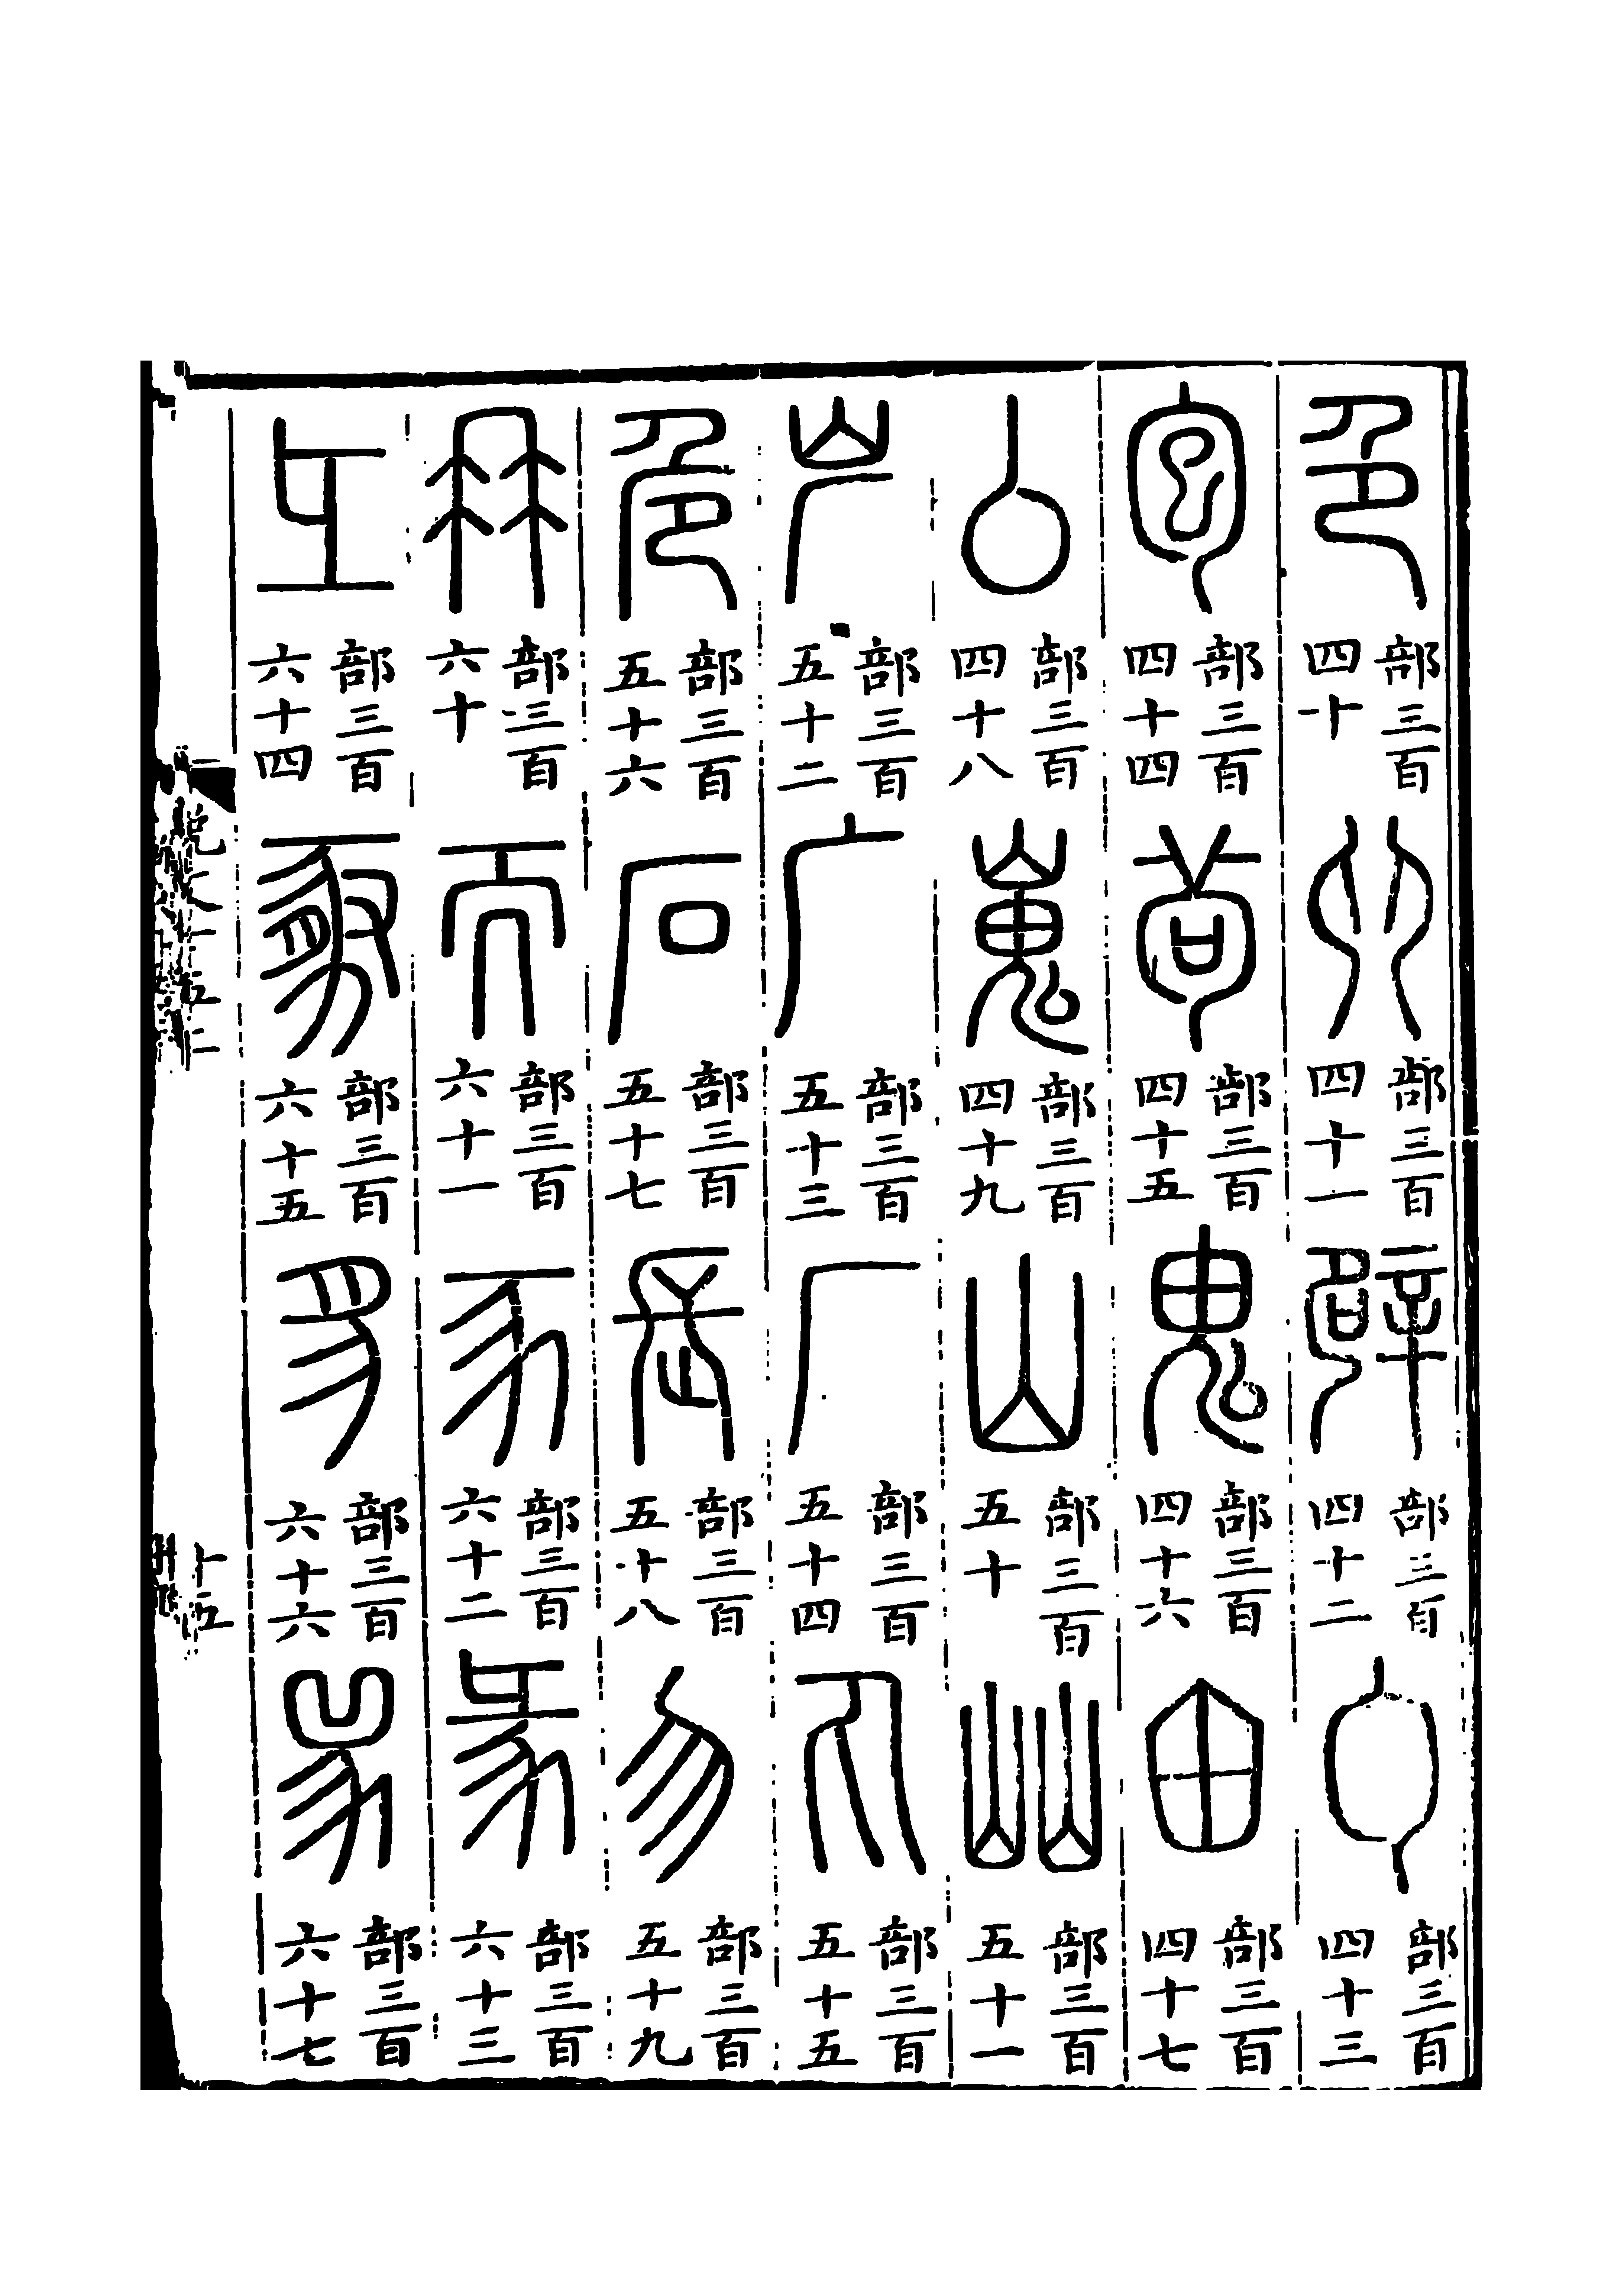 色部三百四十𠨍部三百四十一辟部三百四十二勹部三百四十三
包部三百四十四茍部三百四十五鬼部三百四十六甶部三百四十七
厶部三百四十八嵬部三百四十九山部三百五十屾部三百五十一
屵部三百五十二广部三百五十三厂部三百五十四丸部三百五十五
危部三百五十六石部三百五十七長部三百五十八勿部三百五十九
冄部三百六十而部三百六十一豕部三百六十二㣇部三百六十三
彑部三百六十四豚部三百六十五豸部三百六十六𤉡部三百六十七